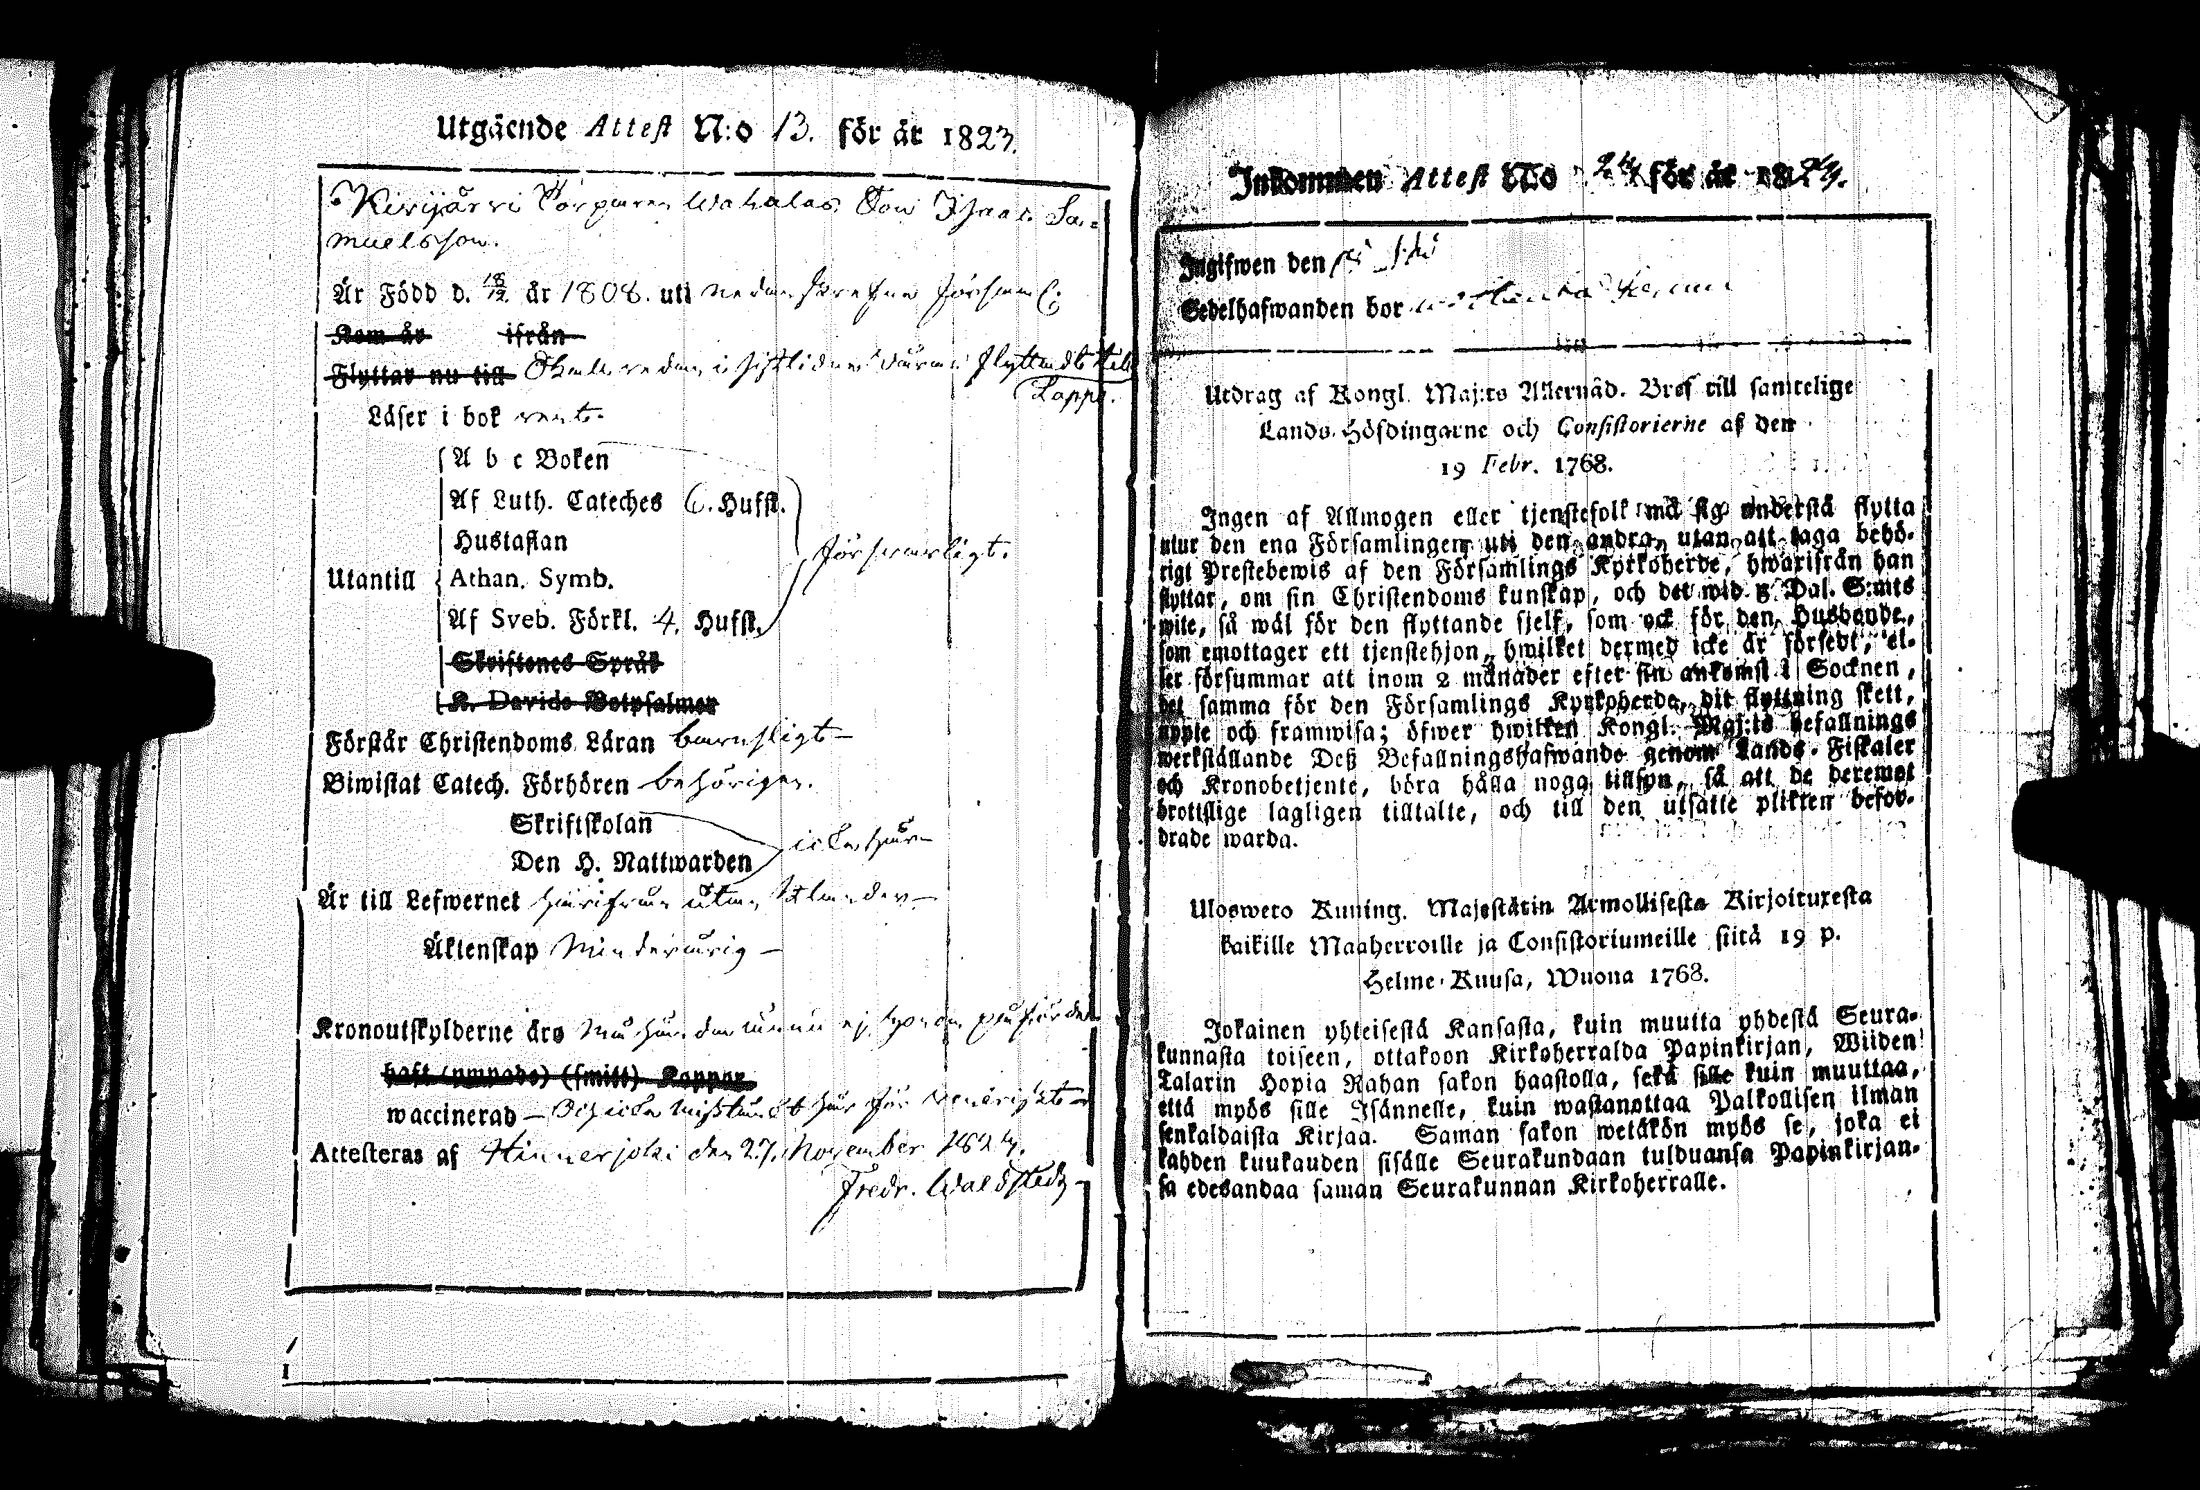 Utgående Attest N:o 13. för år 1823.
Kirijärvi Torparen Wahalas Son Isaac Sa-
muelsson.
Är Född d. 18/12 år 1808. uti
Kom år ifrån
Flyttar nu till
Läser i bok rent.
A b c Boken
Af Luth. Cateches 6. Hufst.
Hustaflan
försvarligt.
Utantill Athan. Symb.
Af Sveb. Förkl. 4. Hufst.
Skriftenes Språk
K. Davids Botpsalmer
Förstår Christendoms Läran barnsligt
Biwistat Catech. Förhören behörigen.
Skriftskolan
Den H. Nattwarden
Är till Lefwernet härifrån utan klander
Äktenskap Minderårig
Kronoutskylderne äro
haft (ympade) (smitt) Koppor
waccinerad
Attesteras af Hinnerjoki den 27. November
Fredr. Waldstedt
Inkommen Attest N:o 24 för år 1824.
Ingifwen den
Sedelhafwanden bor
Utdrag af Kongl. Maj:ts Allernåd. Bref till samtelige
Lands-Höfdingarne och Consistorierne af den
19 Febr. 1768.
Ingen af Allmogen eller tjenstefolk må sig understå flytta
utur den ena Församlingen uti den andra, utan att taga behö-
rigt Prestebewis af den Församlings Kyrkoherde, hwarifrån han
flyttar, om sin Christendoms kunskap, och det wid 5 Dal. S:mts
wite, så wäl för den flyttande sjelf, som ock för den Husbonde,
som emottager ett tjenstehjon, hwilket dermed icke är försedt, el-
ler försummar att inom 2 månader efter sin ankomst i Socknen,
det samma för den Församlings Kyrkoherde, dit flyttning skett,
uppte och framwisa; öfwer hwilken Kongl. Maj:ts befallnings
werkställande Deß Befallningshafwande genom Lands-Fiskaler
och Kronobetjente, böra hålla noga tillsyn, så att de deremot
brottslige lagligen tilltalte, och till den utsatte plikten befor-
drade warda.
Uloswetо Kuning. Majestätin Armollisesta Kirjoituxesta
kaikille Maaherroille ja Consistoriumeille siitä 19 p.
Helme-Kuusa, Wuona 1768.
Jokainen yhteisestä Kansasta, kuin muutta yhdestä Seura-
kunnasta toiseen, ottakoon Kirkoherralda Papinkirjan, Wiiden
Talarin Hopia Rahan sakon haastolla, sekä sille kuin muuttaa,
että myös sille Isännelle, kuin wastanottaa Palkollisen ilman
senkaldaista Kirjaa. Saman sakon wetäkön myös se, joka ei
kahden kuukauden sisälle Seurakundaan tulduansa Papinkirjan-
sa edesandaa saman Seurakunnan Kirkoherralle.